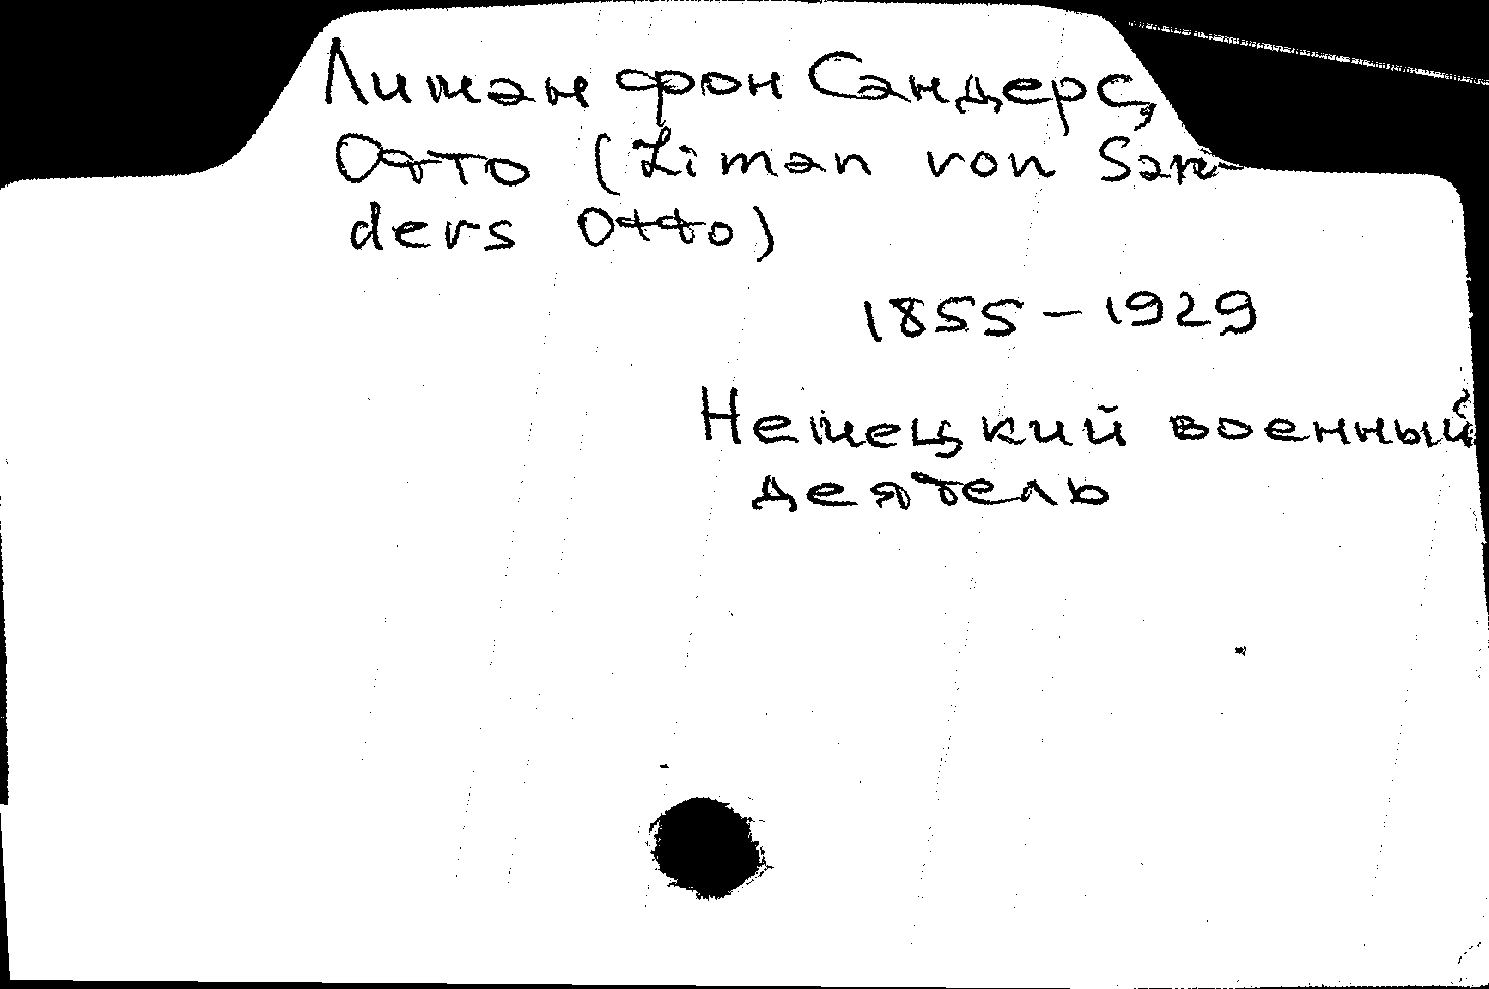 Лиман фон Сандерс,
Отто (Liman von San-
ders Otto)
1855-1929
Немецкий военный
деятель